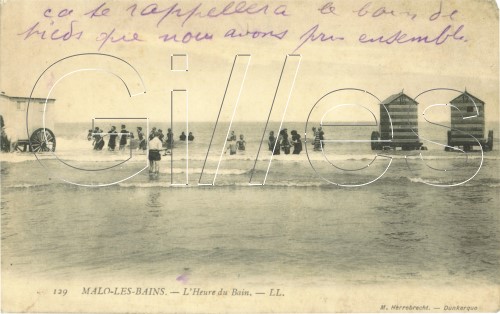 ça te rappellera le bain de
pieds que nous avons pris ensemble.
Gilles
129 MALO-LES-BAINS. — L'Heure du Bain. — LL.
M. Herrebrecht. — Dunkerque